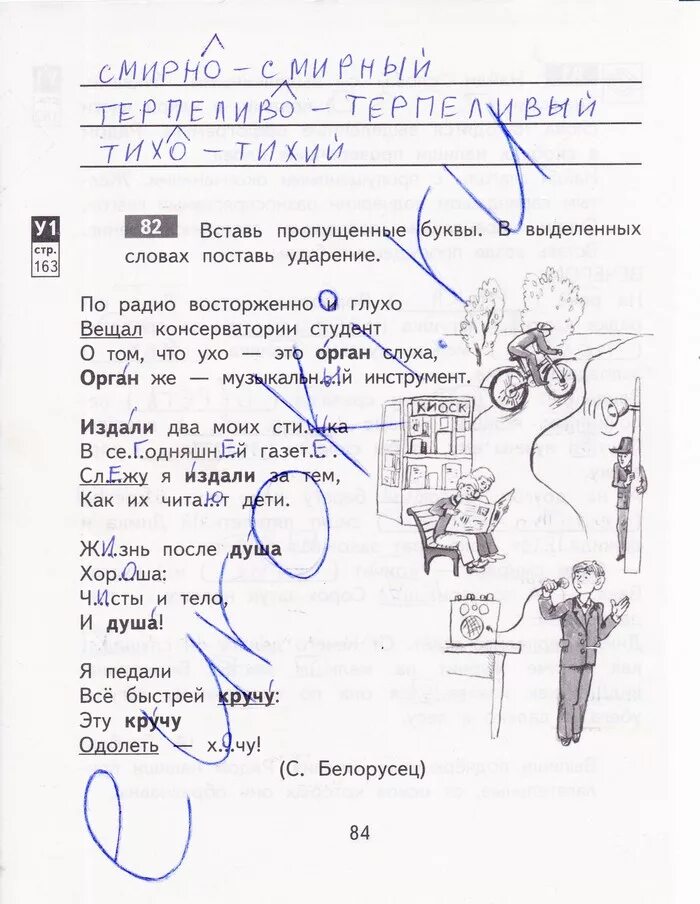 СМИРНО – СМИРНЫЙ
ТЕРПЕЛИВО – ТЕРПЕЛИВЫЙ
ТИХО – ТИХИЙ
У1
стр.
163
82 Вставь пропущенные буквы. В выделенных
словах поставь ударение.
По радио восторженно и глухо
Вещал консерватории студент
О том, что ухо — это о́рган слуха,
Орга́н же — музыкальн.Ы.й инструмент.
Издали́ два моих сти...ка
В се.Г.одняшн.Е.й газет.Е..
Сл.Е.жу я и́здали за тем,
Как их чита.Ю.т дети.
Ж.И.знь после ду́ша
Хор.О.ша:
Ч.И.сты и тело,
И душа́!
Я педали
Всё быстрей кручу́:
Эту кру́чу
Одолеть — х.О.чу!
(С. Белорусец)
КИОСК
84